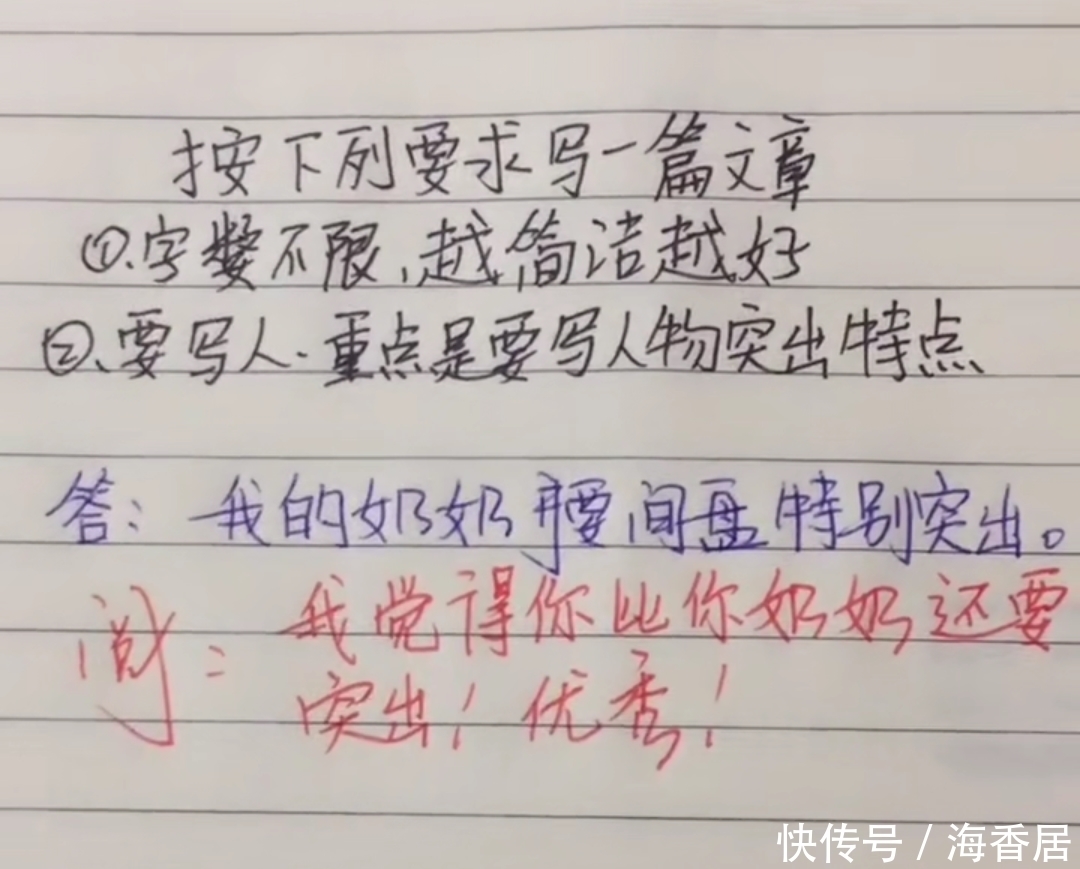 按下列要求写一篇文章
①.字数不限,越简洁越好
②、要写人.重点是要写人物突出特点
答:我的奶奶腰间盘特别突出。
阅:我觉得你比你奶奶还要
突出!优秀!
快传号/海香居